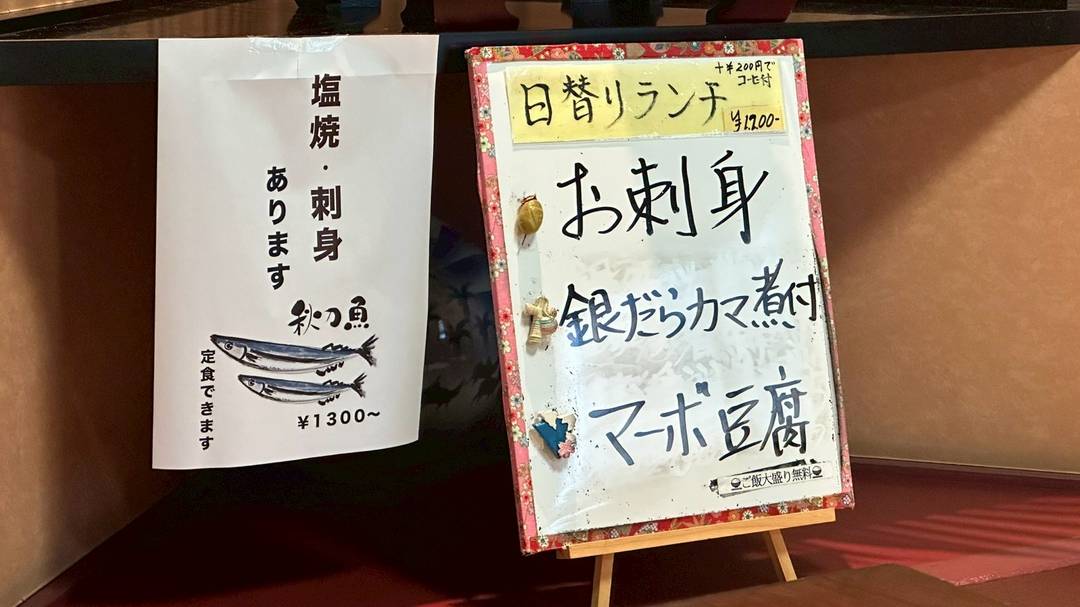 塩焼・刺身
あります
秋刀魚
定食できます
¥1300~
+¥200円で
コーヒー付
日替りランチ
¥1,200-
お刺身
銀だらカマ煮付
マーボ豆腐
ご飯大盛り無料